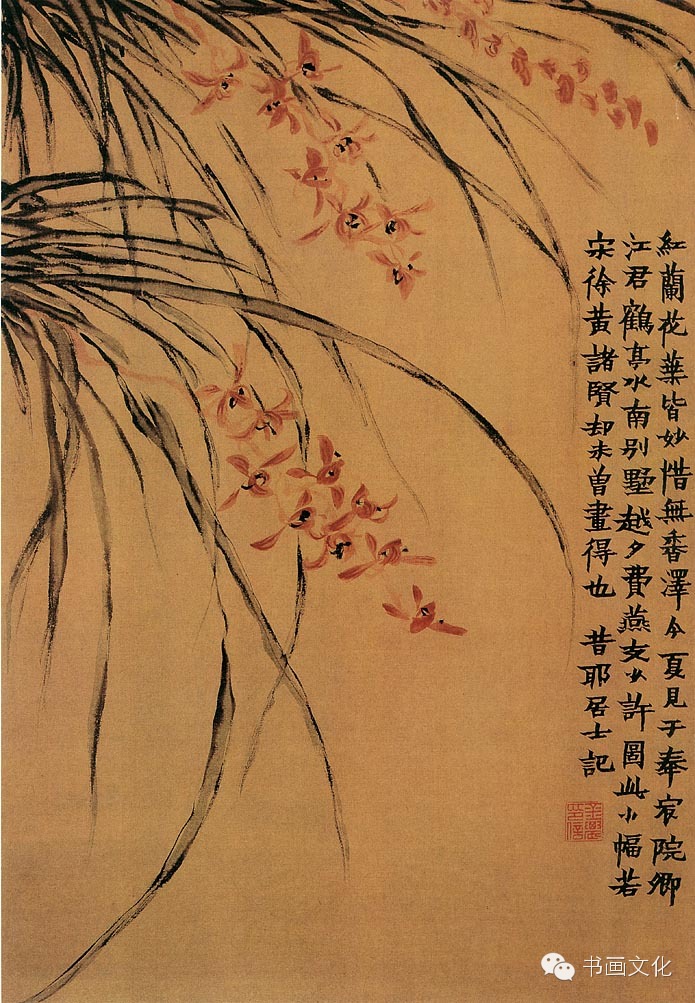 紅蘭花葉皆妙惜無香澤今夏見于奉宸院卿
江君鶴亭水南別墅越夕費燕支少許圖此小幅若
宋徐黃諸賢却未曾畫得也 昔耶居士記
金農印信
书画文化